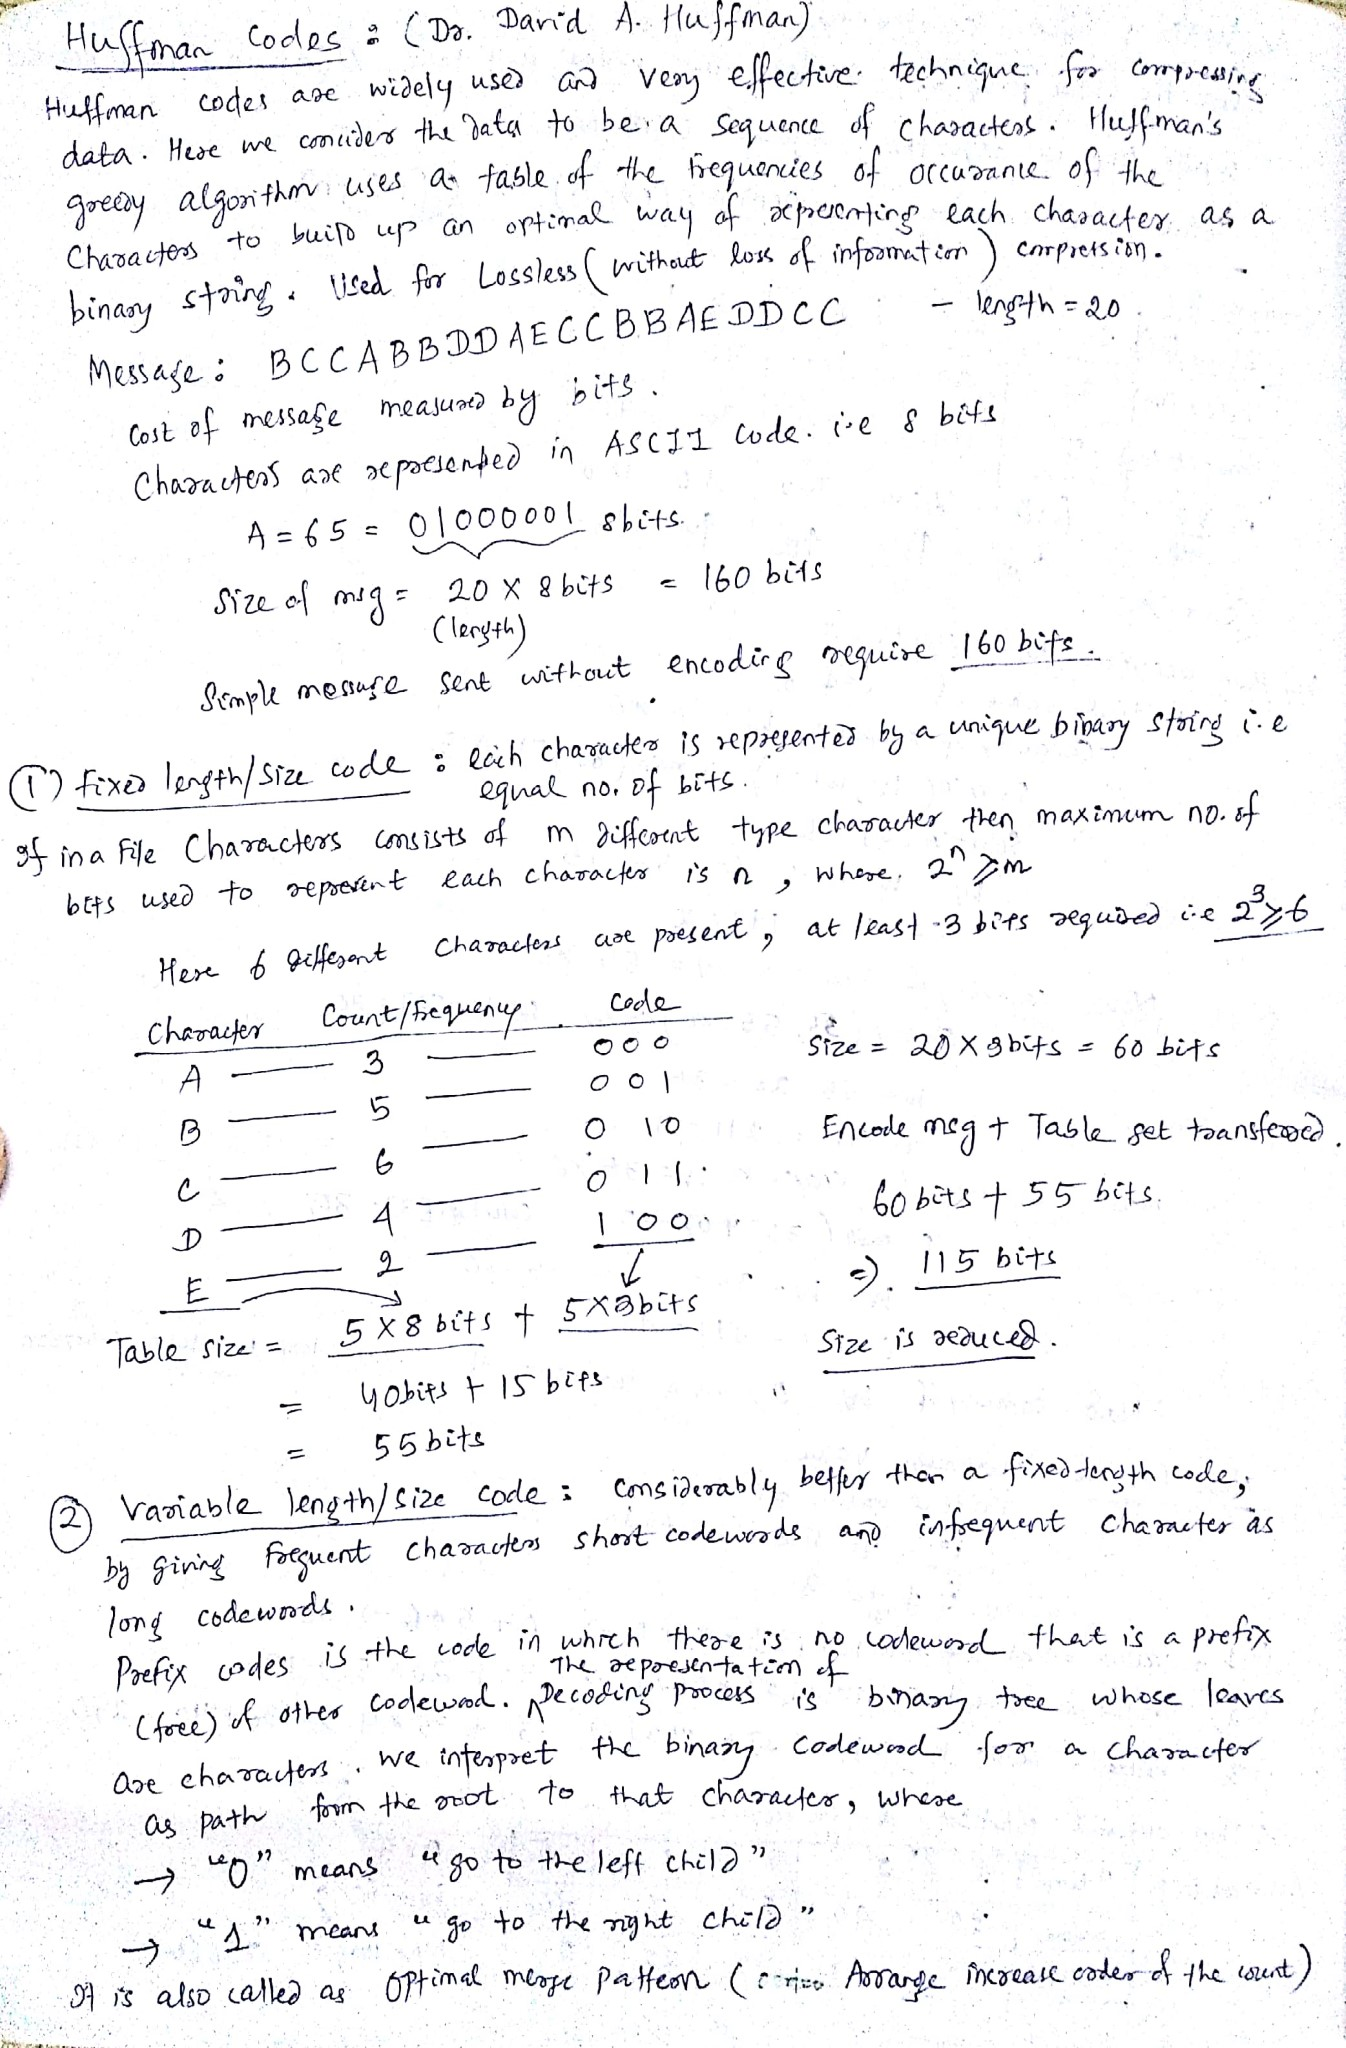 Huffman Codes : (Dr. David A. Huffman)
Huffman codes are widely used and very effective technique for compressing
data. Here we consider the data to be a sequence of characters. Huffman's
greedy algorithm uses a table of the frequencies of occurance of the
Characters to build up an optimal way of representing each character as a
binary string. Used for Lossless (without loss of information) compression.
Message : BCCABBDDAECCBBAEDDCC - length = 20
Cost of message measured by bits.
Characters are represented in ASCII Code. i.e 8 bits
A = 65 = 01000001 8bits.
Size of msg = 20 X 8 bits = 160 bits
(length)
Simple message sent without encoding require 160 bits.
(1) Fixed length/Size code : each character is represented by a unique binary string i.e
equal no. of bits.
If in a File Characters consists of m different type character then maximum no. of
bits used to represent each character is n, where 2^n ≥ m
Here 6 different characters are present, at least 3 bits required i.e 2^3 ≥ 6
Character Count/Frequency Code
A — 3 — 000
B — 5 — 001
C — 6 — 010
D — 4 — 011
E — 2 — 100
Table Size = 5 X 8 bits + 5X3bits
= 40bits + 15 bits
= 55 bits
Size = 20 X 3bits = 60 bits
Encode msg + Table get transferred.
60 bits + 55 bits.
⇒ 115 bits
Size is reduced.
(2) Variable length/Size code : Considerably better than a fixed-length code,
by giving frequent characters short codewords and infrequent character as
long codewords.
Prefix codes is the code in which there is no codeword that is a prefix
The representation of
(free) of other codeword. ^Decoding process is binary tree whose leaves
are characters. We interpret the binary codeword for a character
as path from the root to that character, where
→ "0" means "go to the left child"
→ "1" means "go to the right child"
It is also called as Optimal merge Pattern ( Arrange increase order of the count)